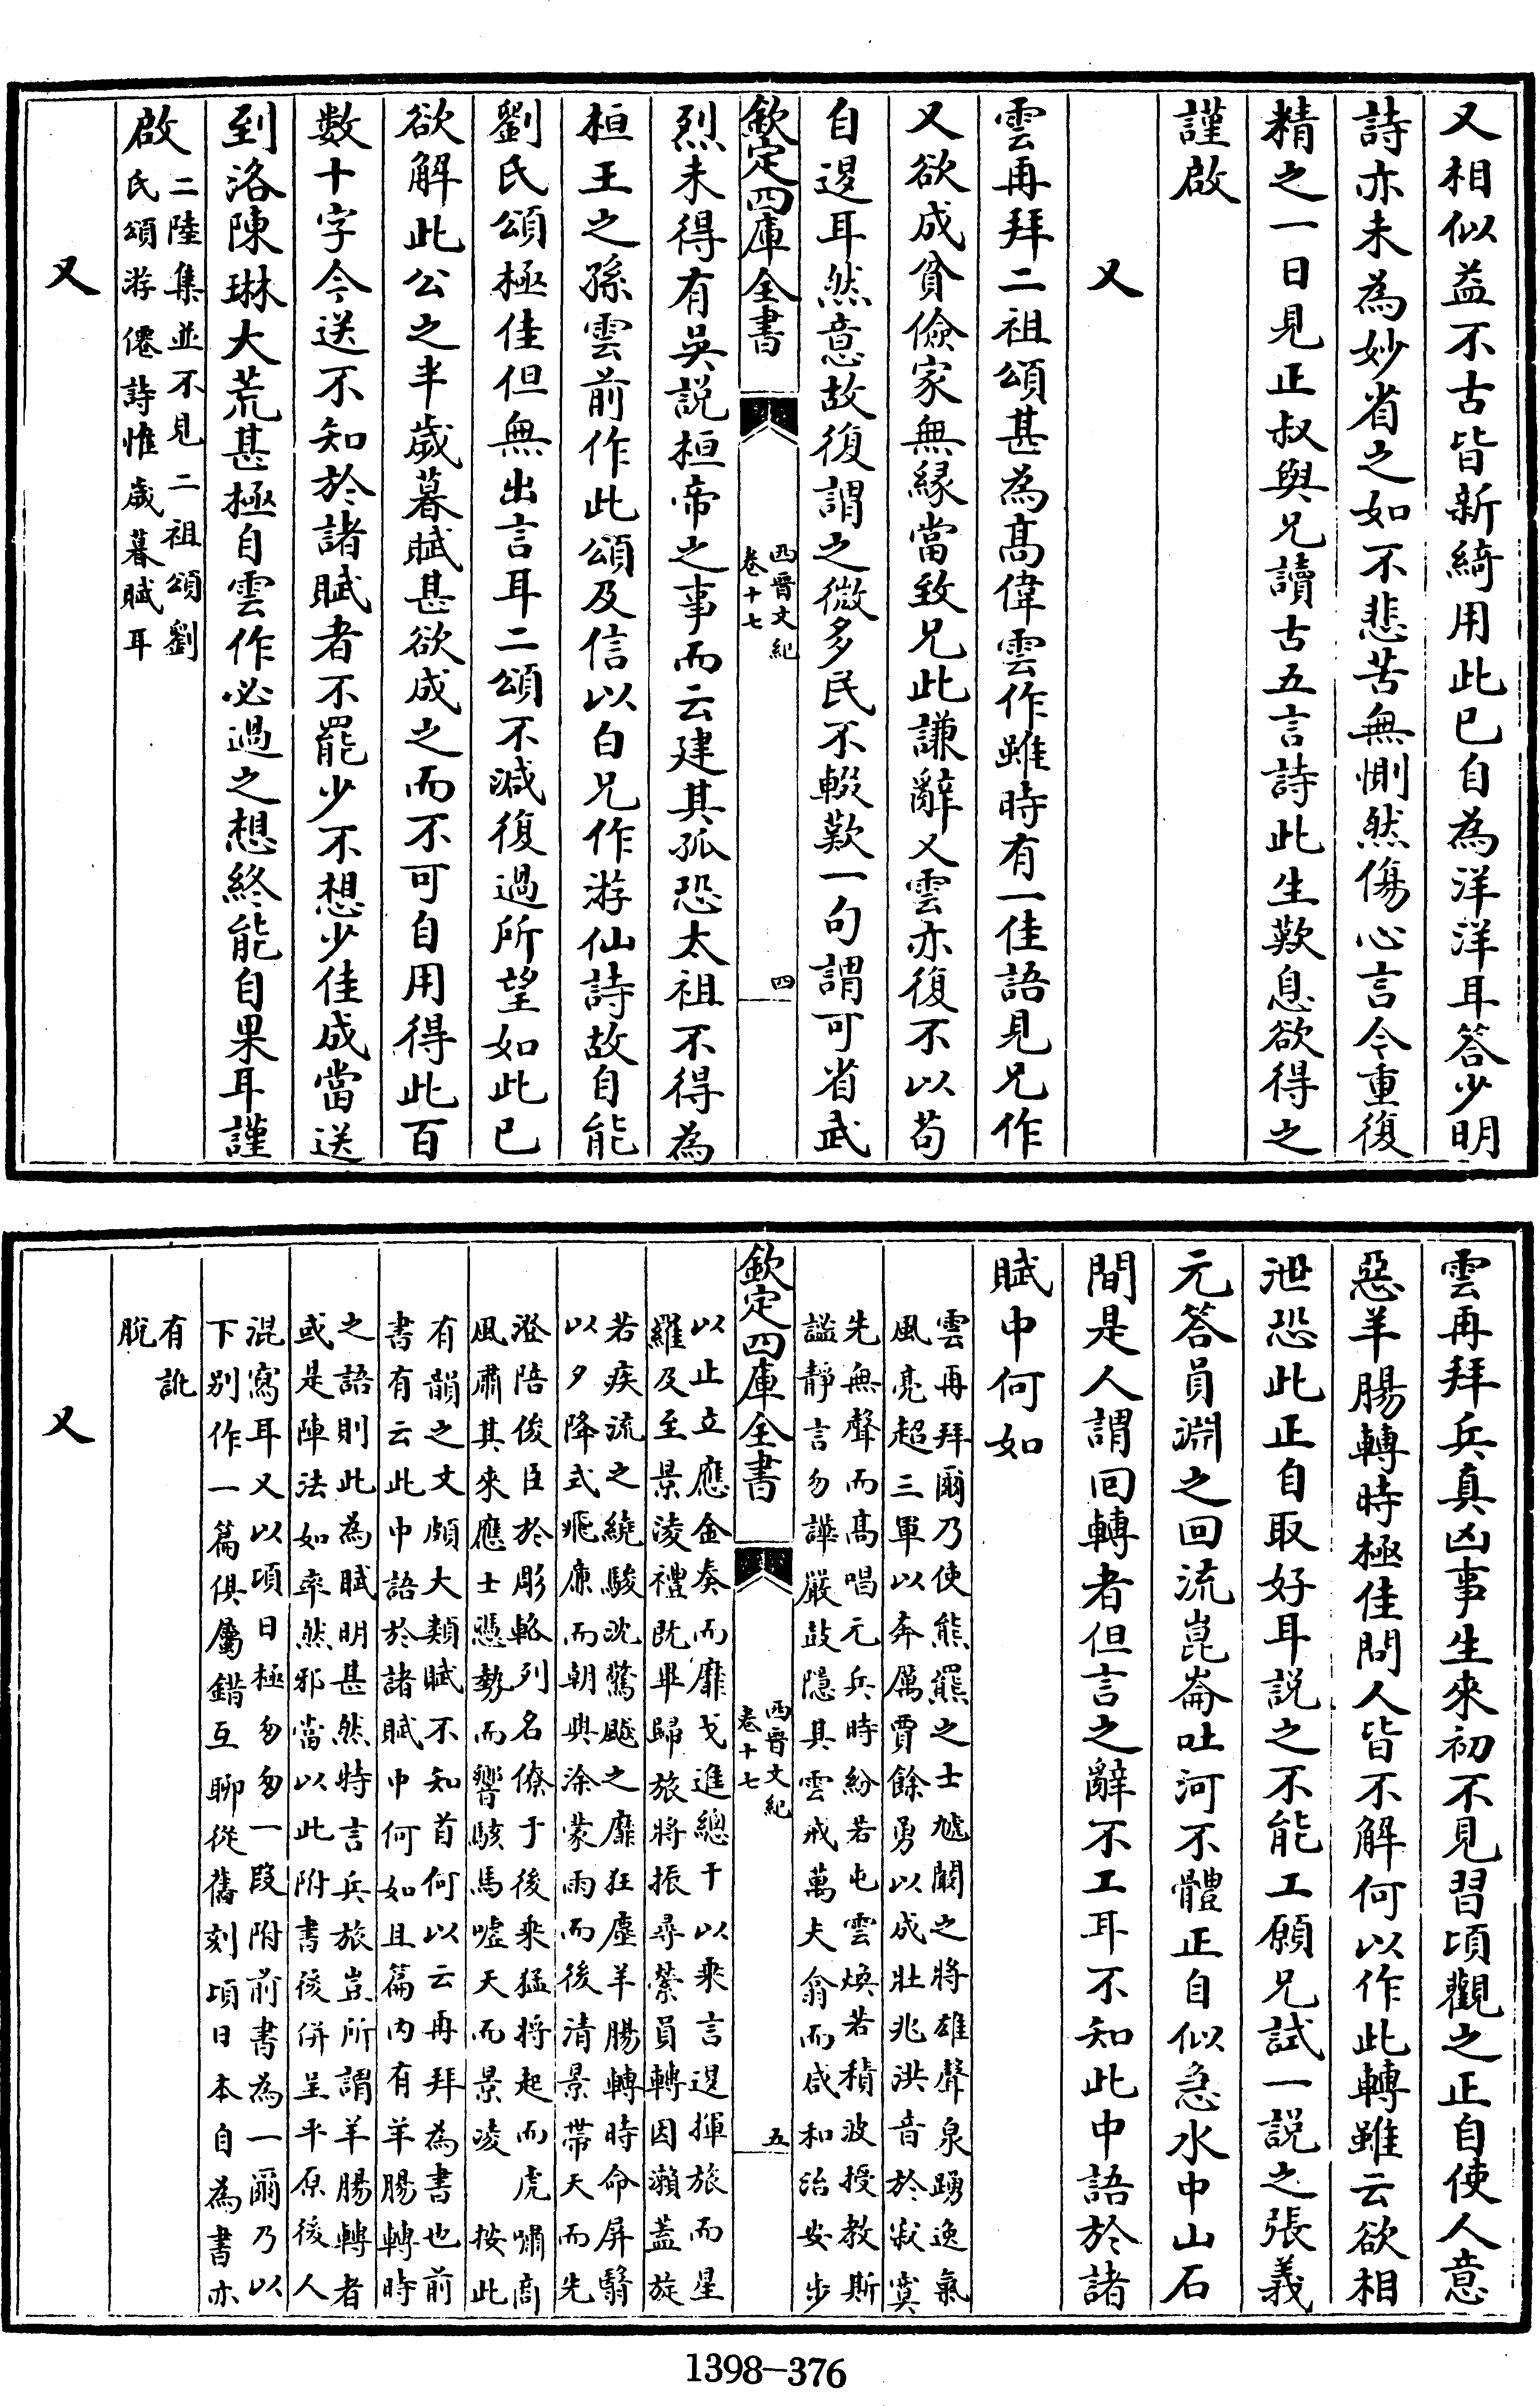 又相似益不古皆新綺用此已自為洋洋耳答少明
詩亦未為妙省之如不悲苦無惻然傷心言今重復
精之一日見正叔與兄讀古五言詩此生歎息欲得之
謹啟
又
雲再拜二祖頌甚為髙偉雲作雖時有一佳語見兄作
又欲成貧儉家無縁當致兄此謙辭又雲亦復不以苟
自退耳然意故復謂之微多民不輟歎一句謂可省武
欽定四庫全書
西晉文紀
卷十七
四
烈未得有吳説桓帝之事而云建其孤恐太祖不得為
桓王之孫雲前作此頌及信以白兄作游仙詩故自能
劉氏頌極佳但無出言耳二頌不減復過所望如此已
欲解此公之半歲暮賦甚欲成之而不可自用得此百
數十字今送不知於諸賦者不罷少不想少佳成當送
到洛陳琳大荒甚極自雲作必過之想終能自果耳謹
啟
二陸集並不見二祖頌劉
氏頌游僊詩惟歲暮賦耳
又
雲再拜兵真凶事生來初不見習頃觀之正自使人意
惡羊腸轉時極佳問人皆不解何以作此轉雖云欲相
泄恐此正自取好耳説之不能工願兄試一説之張義
元答員淵之回流崑崙吐河不體正自似急水中山石
間是人謂回轉者但言之辭不工耳不知此中語於諸
賦中何如
雲再拜爾乃使熊羆之士虓闞之將雄聲泉踴逸氣
風亮超三軍以奔厲賈餘勇以成壯兆洪音於寂寞
先無聲而髙唱元兵時紛若屯雲煥若積波授教斯
謐靜言勿譁嚴鼓隱其雲戒萬夫翕而咸和治安步
欽定四庫全書
西晉文紀
卷十七
五
以止立應金奏而靡戈進總干以乘言退揮旅而星
羅及至景淩禮既畢歸旅將振尋縈員轉因瀨蓋旋
若疾流之繞駿沈驚飈之靡狂塵羊腸轉時命屏翳
以夕降式飛廉而朝興涂蒙雨而後清景帶天而先
澄陪俊臣於彫輅列名僚于後乘猛将起而虎嘯商
風肅其來應士憑勢而響駭馬噓天而景凌 按此
有韻之文頗大類賦不知首何以云再拜為書也前
書有云此中語於諸賦中何如且篇内有羊腸轉時
之語則此為賦明甚然特言兵旅豈所謂羊腸轉者
或是陣法如率然邪當以此附書後併呈平原後人
混寫耳又以頃日極匆匆一段附前書為一爾乃以
下别作一篇俱屬錯互聊從舊刻頃日本自為書亦
有訛
脱
又
1398-376